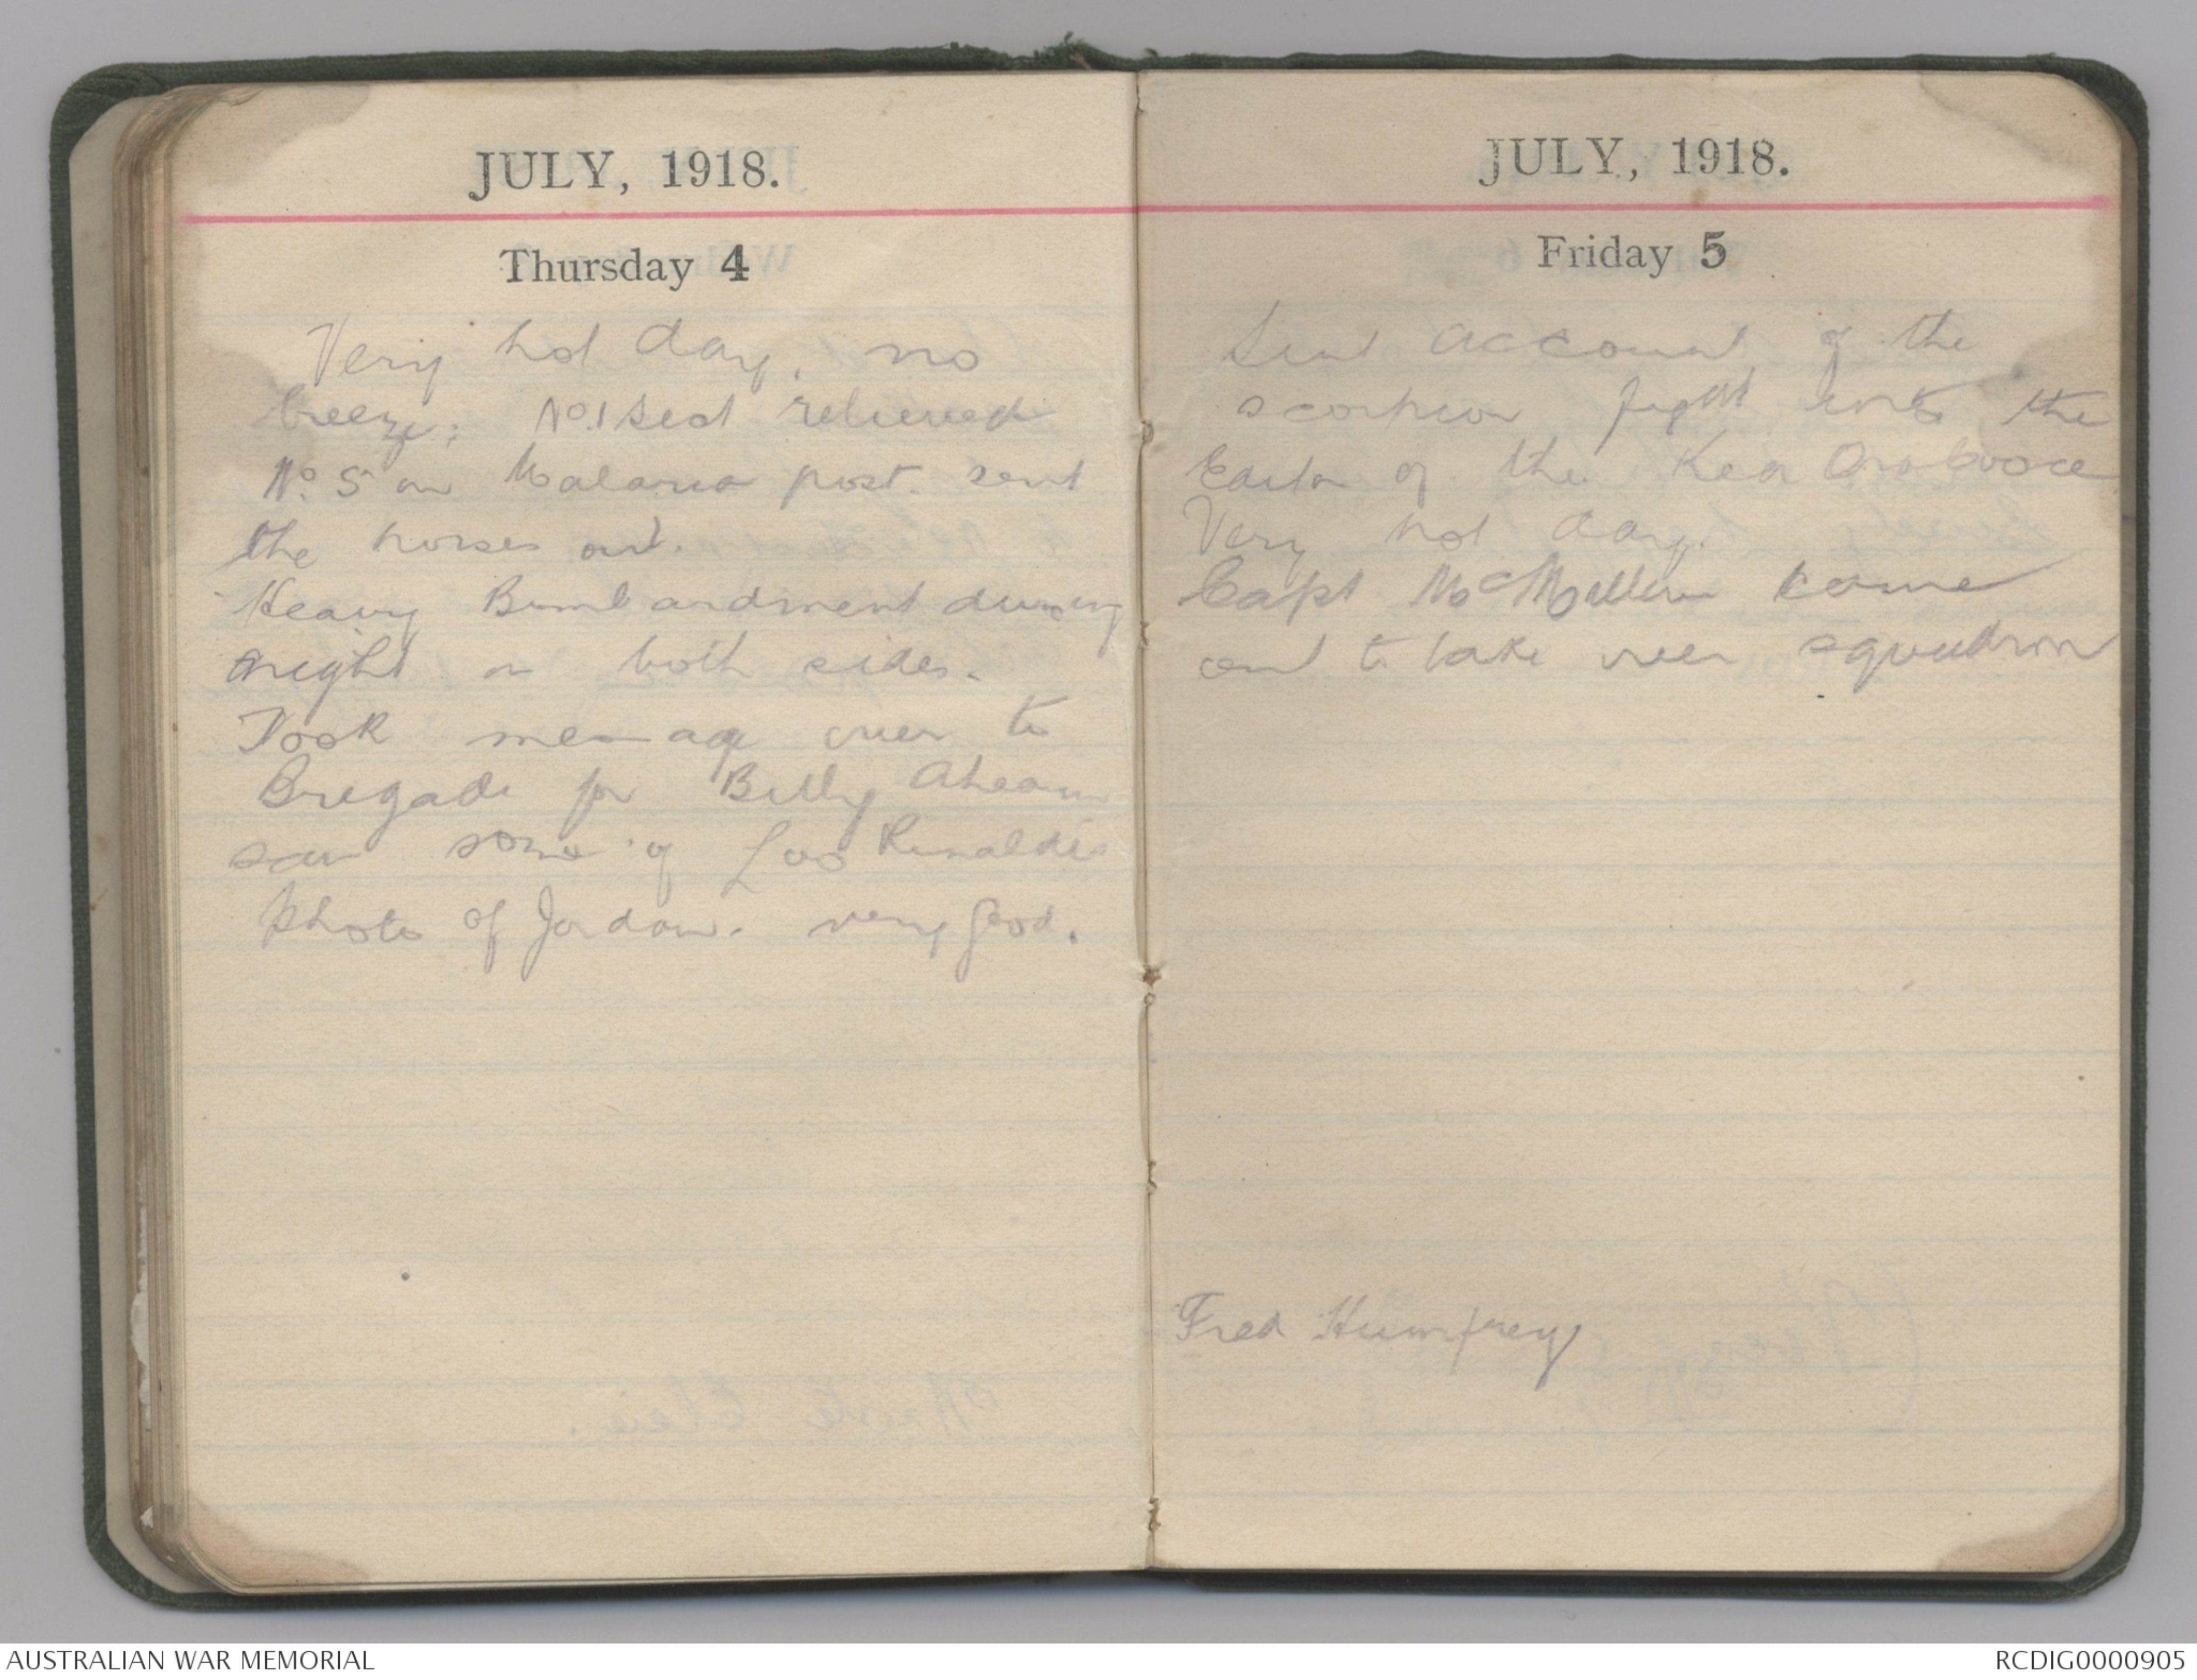 JULY, 1918.
Thursday 4
Very hot day, no
breeze; No.1 Sect relieved
No. 5 on Malaria post. sent
the horses out.
Heavy Bombardment during
night on both sides.
Took message over to
Brigade for Billy Ahearn
saw some of Rinaldis
photos of Jordan. very good.
JULY, 1918.
Friday 5
Sent account of the
scorpion fight into the
Editor of the Kia Ora Cooee
Very hot day.
Capt McMillan came
out to take over squadron
Fred Humfrey
AUSTRALIAN WAR MEMORIAL
RCDIG0000905